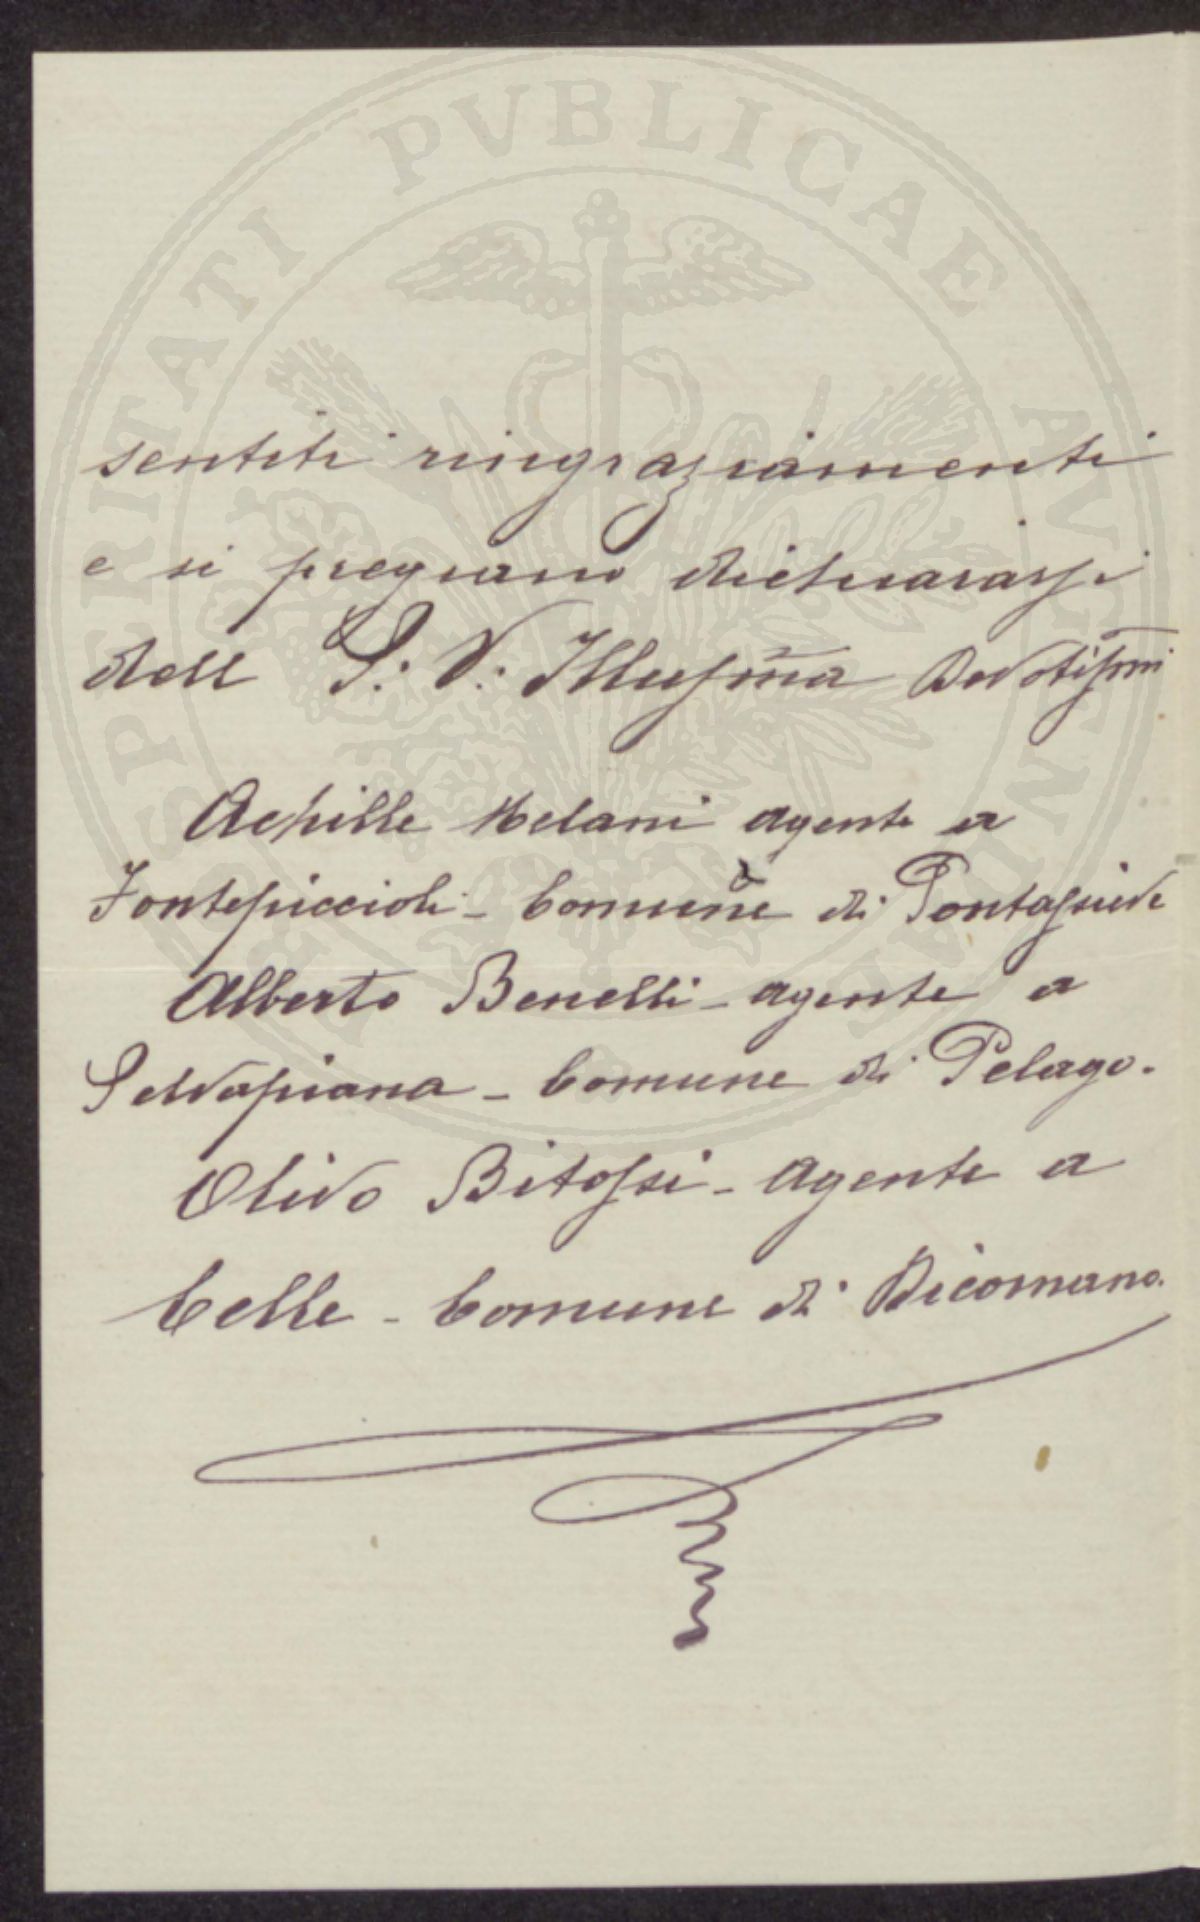 PROSPERITATI PVBLICAE AVGENDAE
sentiti ringraziamenti
e si pregiano dichiararsi
dell S. V. Illusma Devotissmi
Achille Melani agente a
Fontepiccioli - Comune di Pontassieve
Alberto Benelli - agente a
Selvapiana - Comune di Pelago.
Olivo Bitossi - Agente a
Celle - Comune di Dicomano.